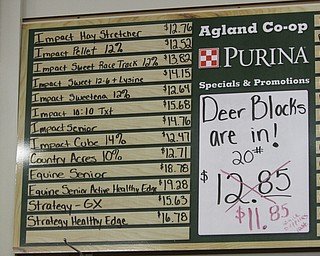 Impact Hay Stretcher $12.76
Impact Pellet 12% $12.52
Impact Sweet Race Track 12% $13.82
Impact Sweet 12-6 + Lysine $14.15
Impact Sweetena 12% $12.64
Impact 10:10 Txt $15.68
Impact Senior $14.76
Impact Cube 14% $12.47
Country Acres 10% $12.71
Equine Senior $18.78
Equine Senior Active Healthy Edge $19.28
Strategy - GX $15.63
Strategy Healthy Edge $16.78
Agland Co-op
PURINA
Specials & Promotions
Deer Blocks
are in!
20#
$12.85
$11.85